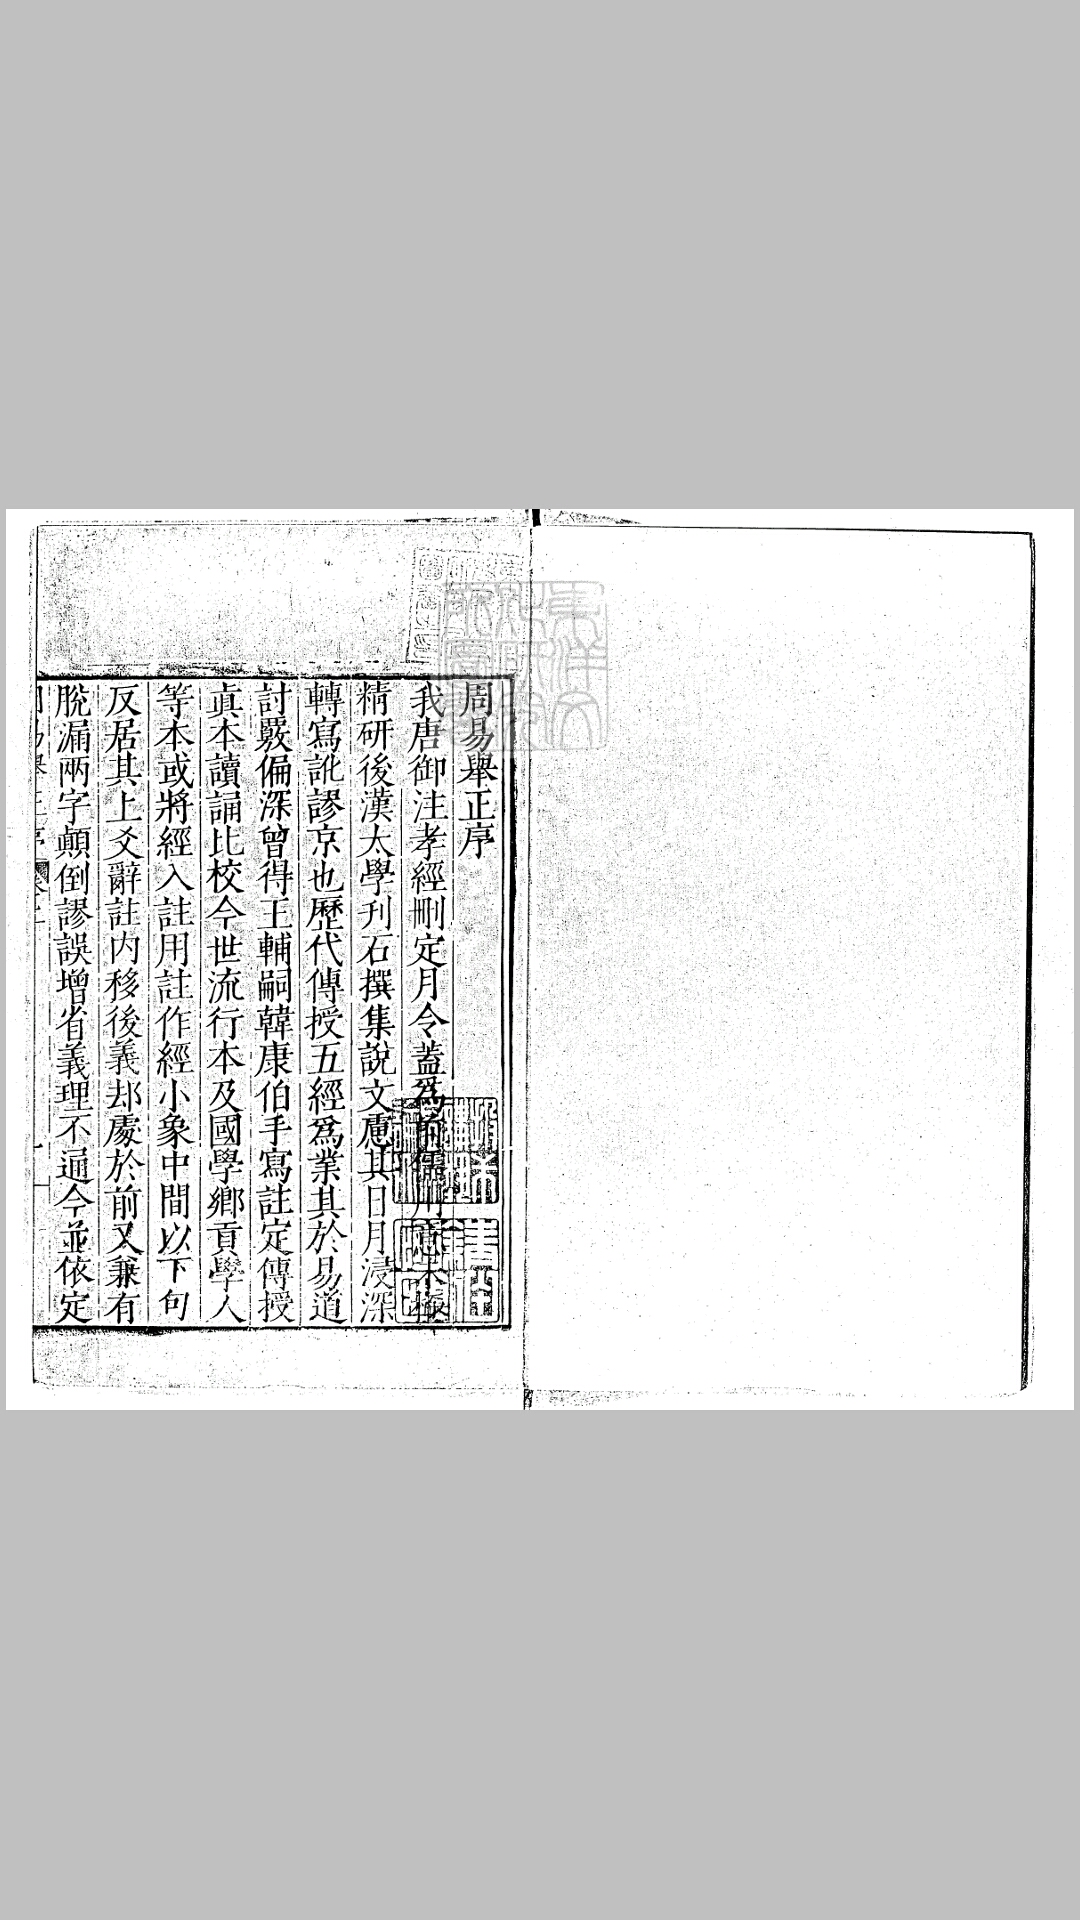 周易舉正序
我唐御注孝經刪定月令蓋爲前儒用意未極
精研後漢太學刋石撰集說文慮其日月浸深
轉寫訛謬京也歷代傳授五經爲業其於易道
討覈偏深曾得王輔嗣韓康伯手寫註定傳授
眞本讀誦比校今世流行本及國學鄉貢學人
等本或將經入註用註作經小象中間以下句
反居其上爻辭註内移後義却處於前又兼有
脫漏兩字顚倒謬誤增省義理不通今並依定